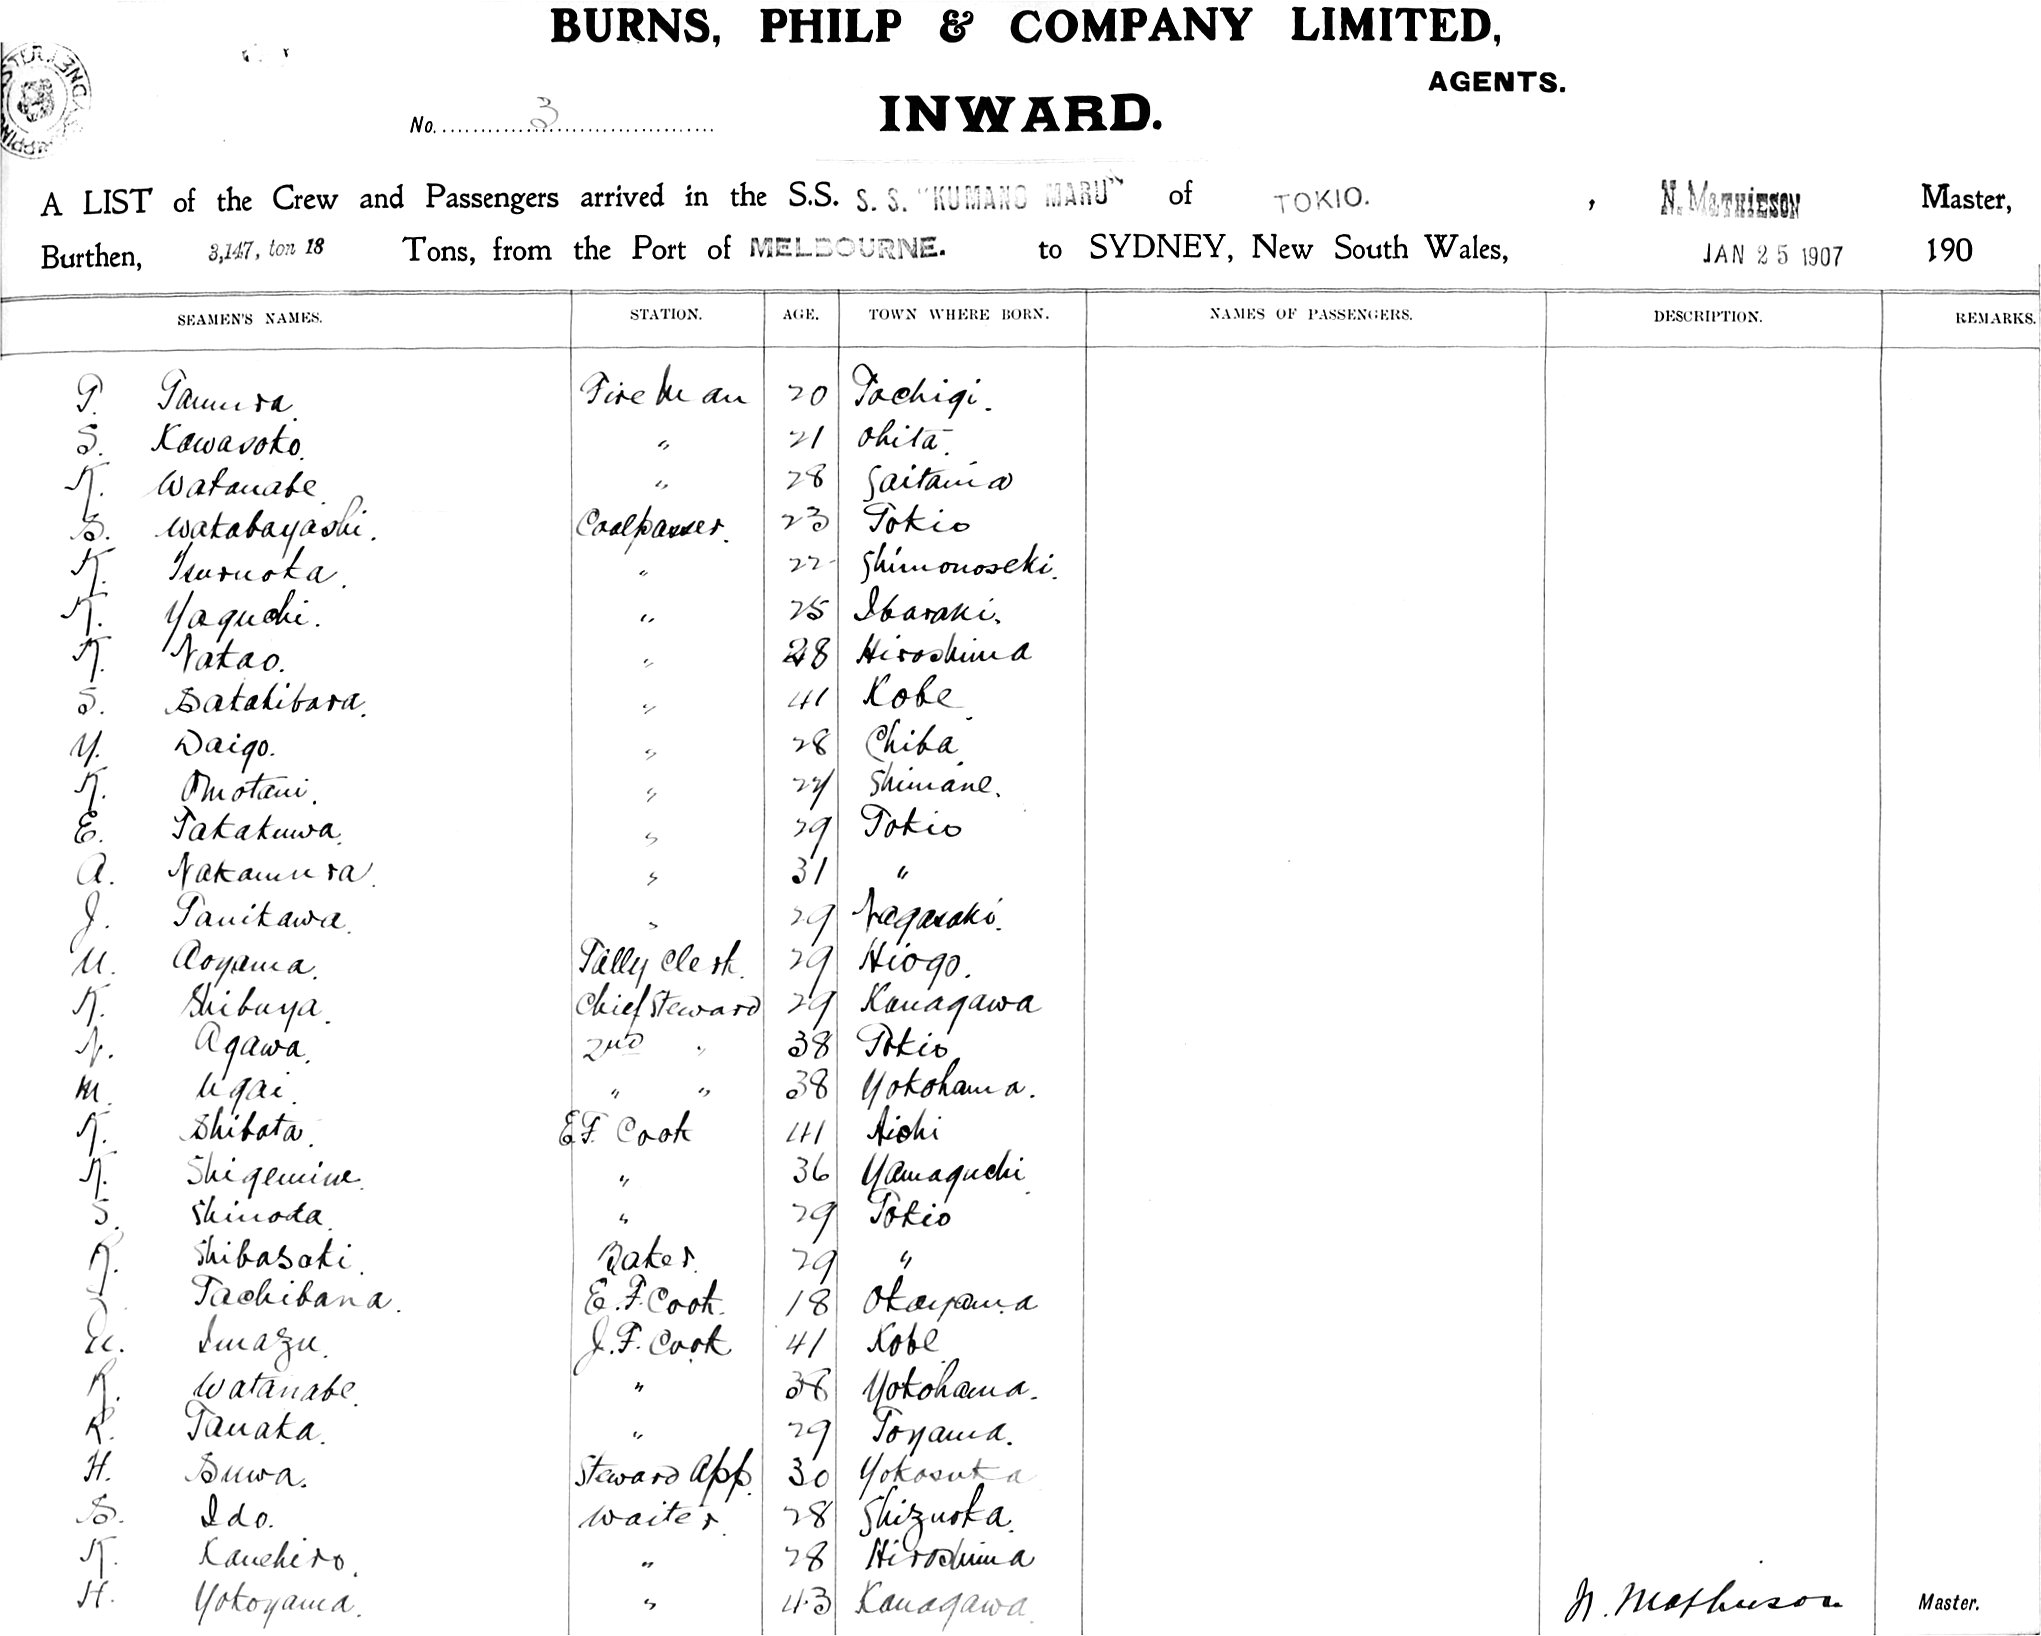 BURNS, PHILP & COMPANY LIMITED,
AGENTS.
No. 3 INWARD.
A LIST of the Crew and Passengers arrived in the S.S. S. S. "KUMANO MARU" of TOKIO. , N. MATHIESON Master,
Burthen, 3,147, ton 18 Tons, from the Port of MELBOURNE. to SYDNEY, New South Wales, JAN 25 1907 190
SEAMEN'S NAMES. STATION. AGE. TOWN WHERE BORN. NAMES OF PASSENGERS. DESCRIPTION. REMARKS.
T. Tamura. Fireman 20 Tochigi.
S. Kawasoko. " 21 Ohita.
K. Watanabe. " 28 Saitama
S. Wakabayashi. Coalpasser. 23 Tokio
K. Tsuruoka. " 22 Shimonoseki.
K. Yaguchi. " 25 Ibaraki.
K. Nakao. " 28 Hiroshima
S. Sakakibara. " 41 Kobe.
Y. Daigo. " 28 Chiba.
K. Omotani. " 24 Shimane.
E. Takakuwa. " 29 Tokio
A. Nakamura. " 31 "
J. Tanikawa. " 29 Nagasaki.
U. Aoyama. Tally Clerk. 29 Hiogo.
K. Shibuya. Chief Steward 29 Kanagawa
N. Agawa. 2nd " 38 Tokio
M. Ugai. " " 38 Yokohama.
K. Shibata. E F. Cook 41 Aichi
K. Shigemine. " 36 Yamaguchi.
S. Shinoda. " 29 Tokio
K. Shibasaki. Baker. 29 "
Tachibana. E. F. Cook. 18 Okayama
U. Imazu. J. F. Cook 41 Kobe.
K. Watanabe. " 38 Yokohama.
K. Tanaka. " 29 Toyama.
H. Suwa. Steward App. 30 Yokosuka
S. Ido. Waiter. 28 Shizuoka.
K. Kanehiro. " 28 Hiroshima
H. Yokoyama. " 43 Kanagawa. N. Mathieson Master.